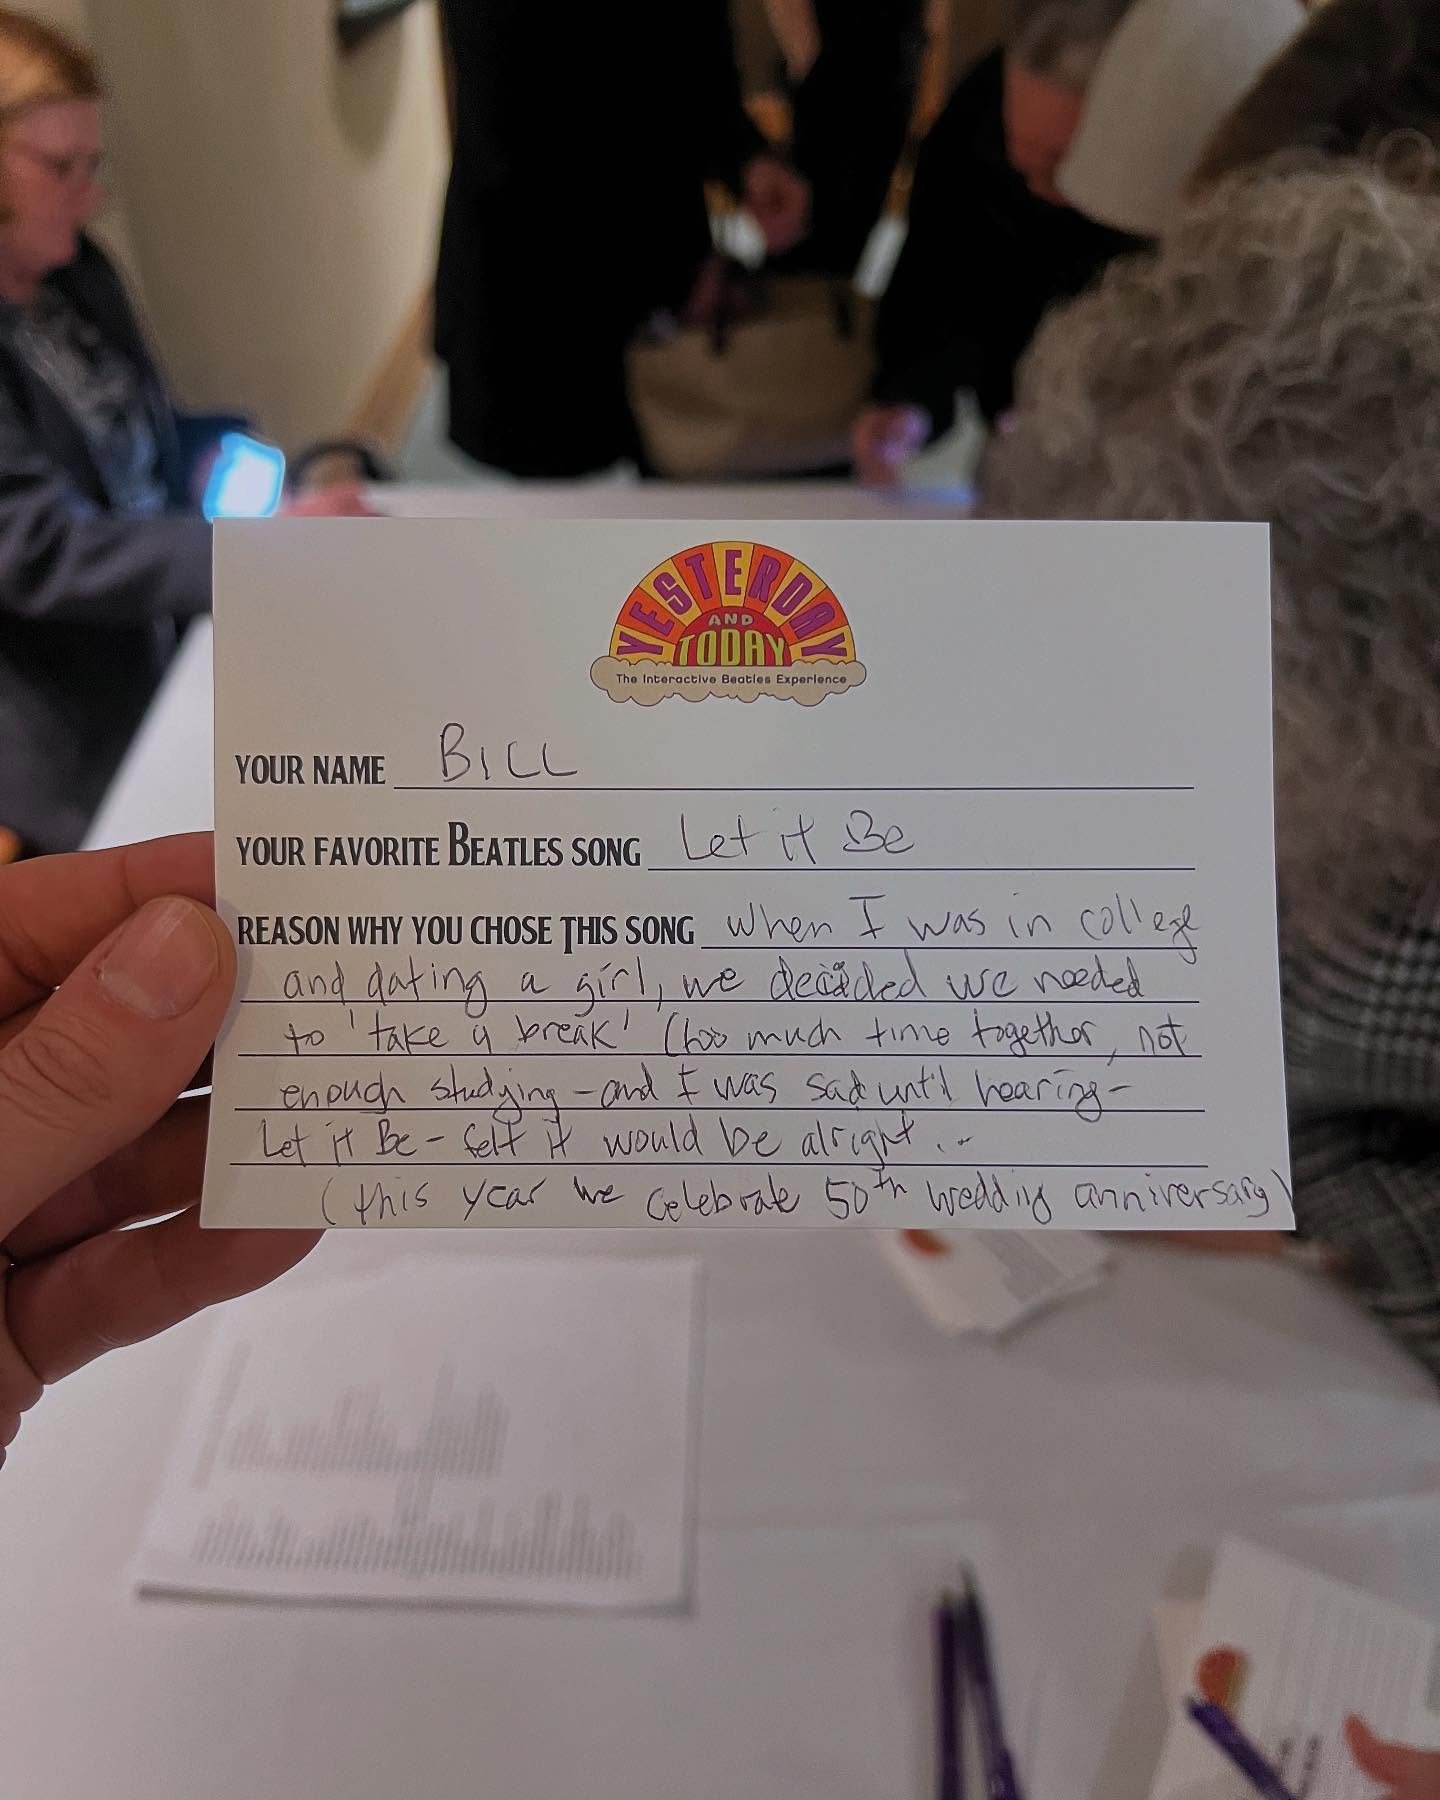 YESTERDAY
AND
TODAY
The Interactive Beatles Experience
YOUR NAME BILL
YOUR FAVORITE BEATLES SONG Let it Be
REASON WHY YOU CHOSE THIS SONG When I was in college
and dating a girl, we decided we needed
to 'take a break' (too much time together, not
enough studying - and I was sad until hearing -
Let it Be - felt it would be alright...
(this year we celebrate 50th wedding anniversary)